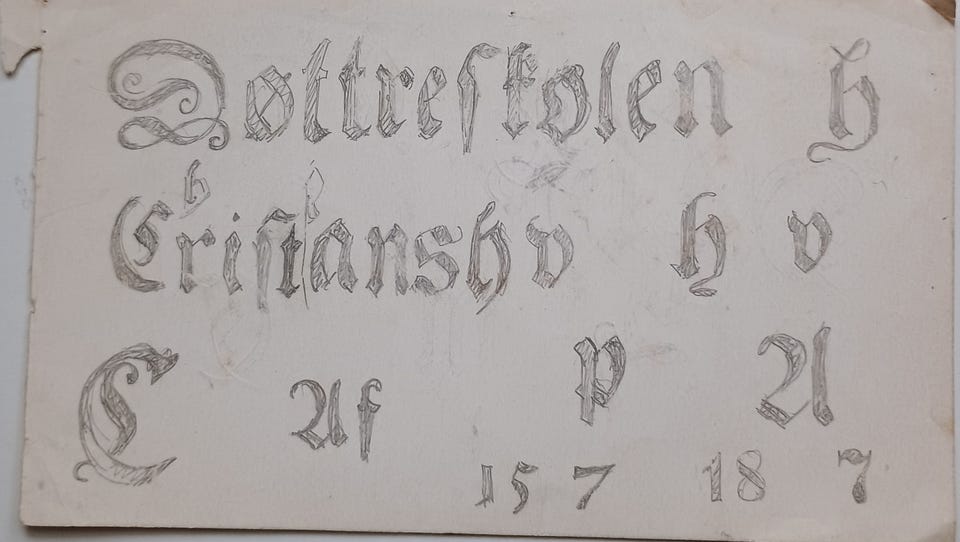 Døttreſkolen h
h
Criſtanshv h v
C Af P A
15 7 18 7